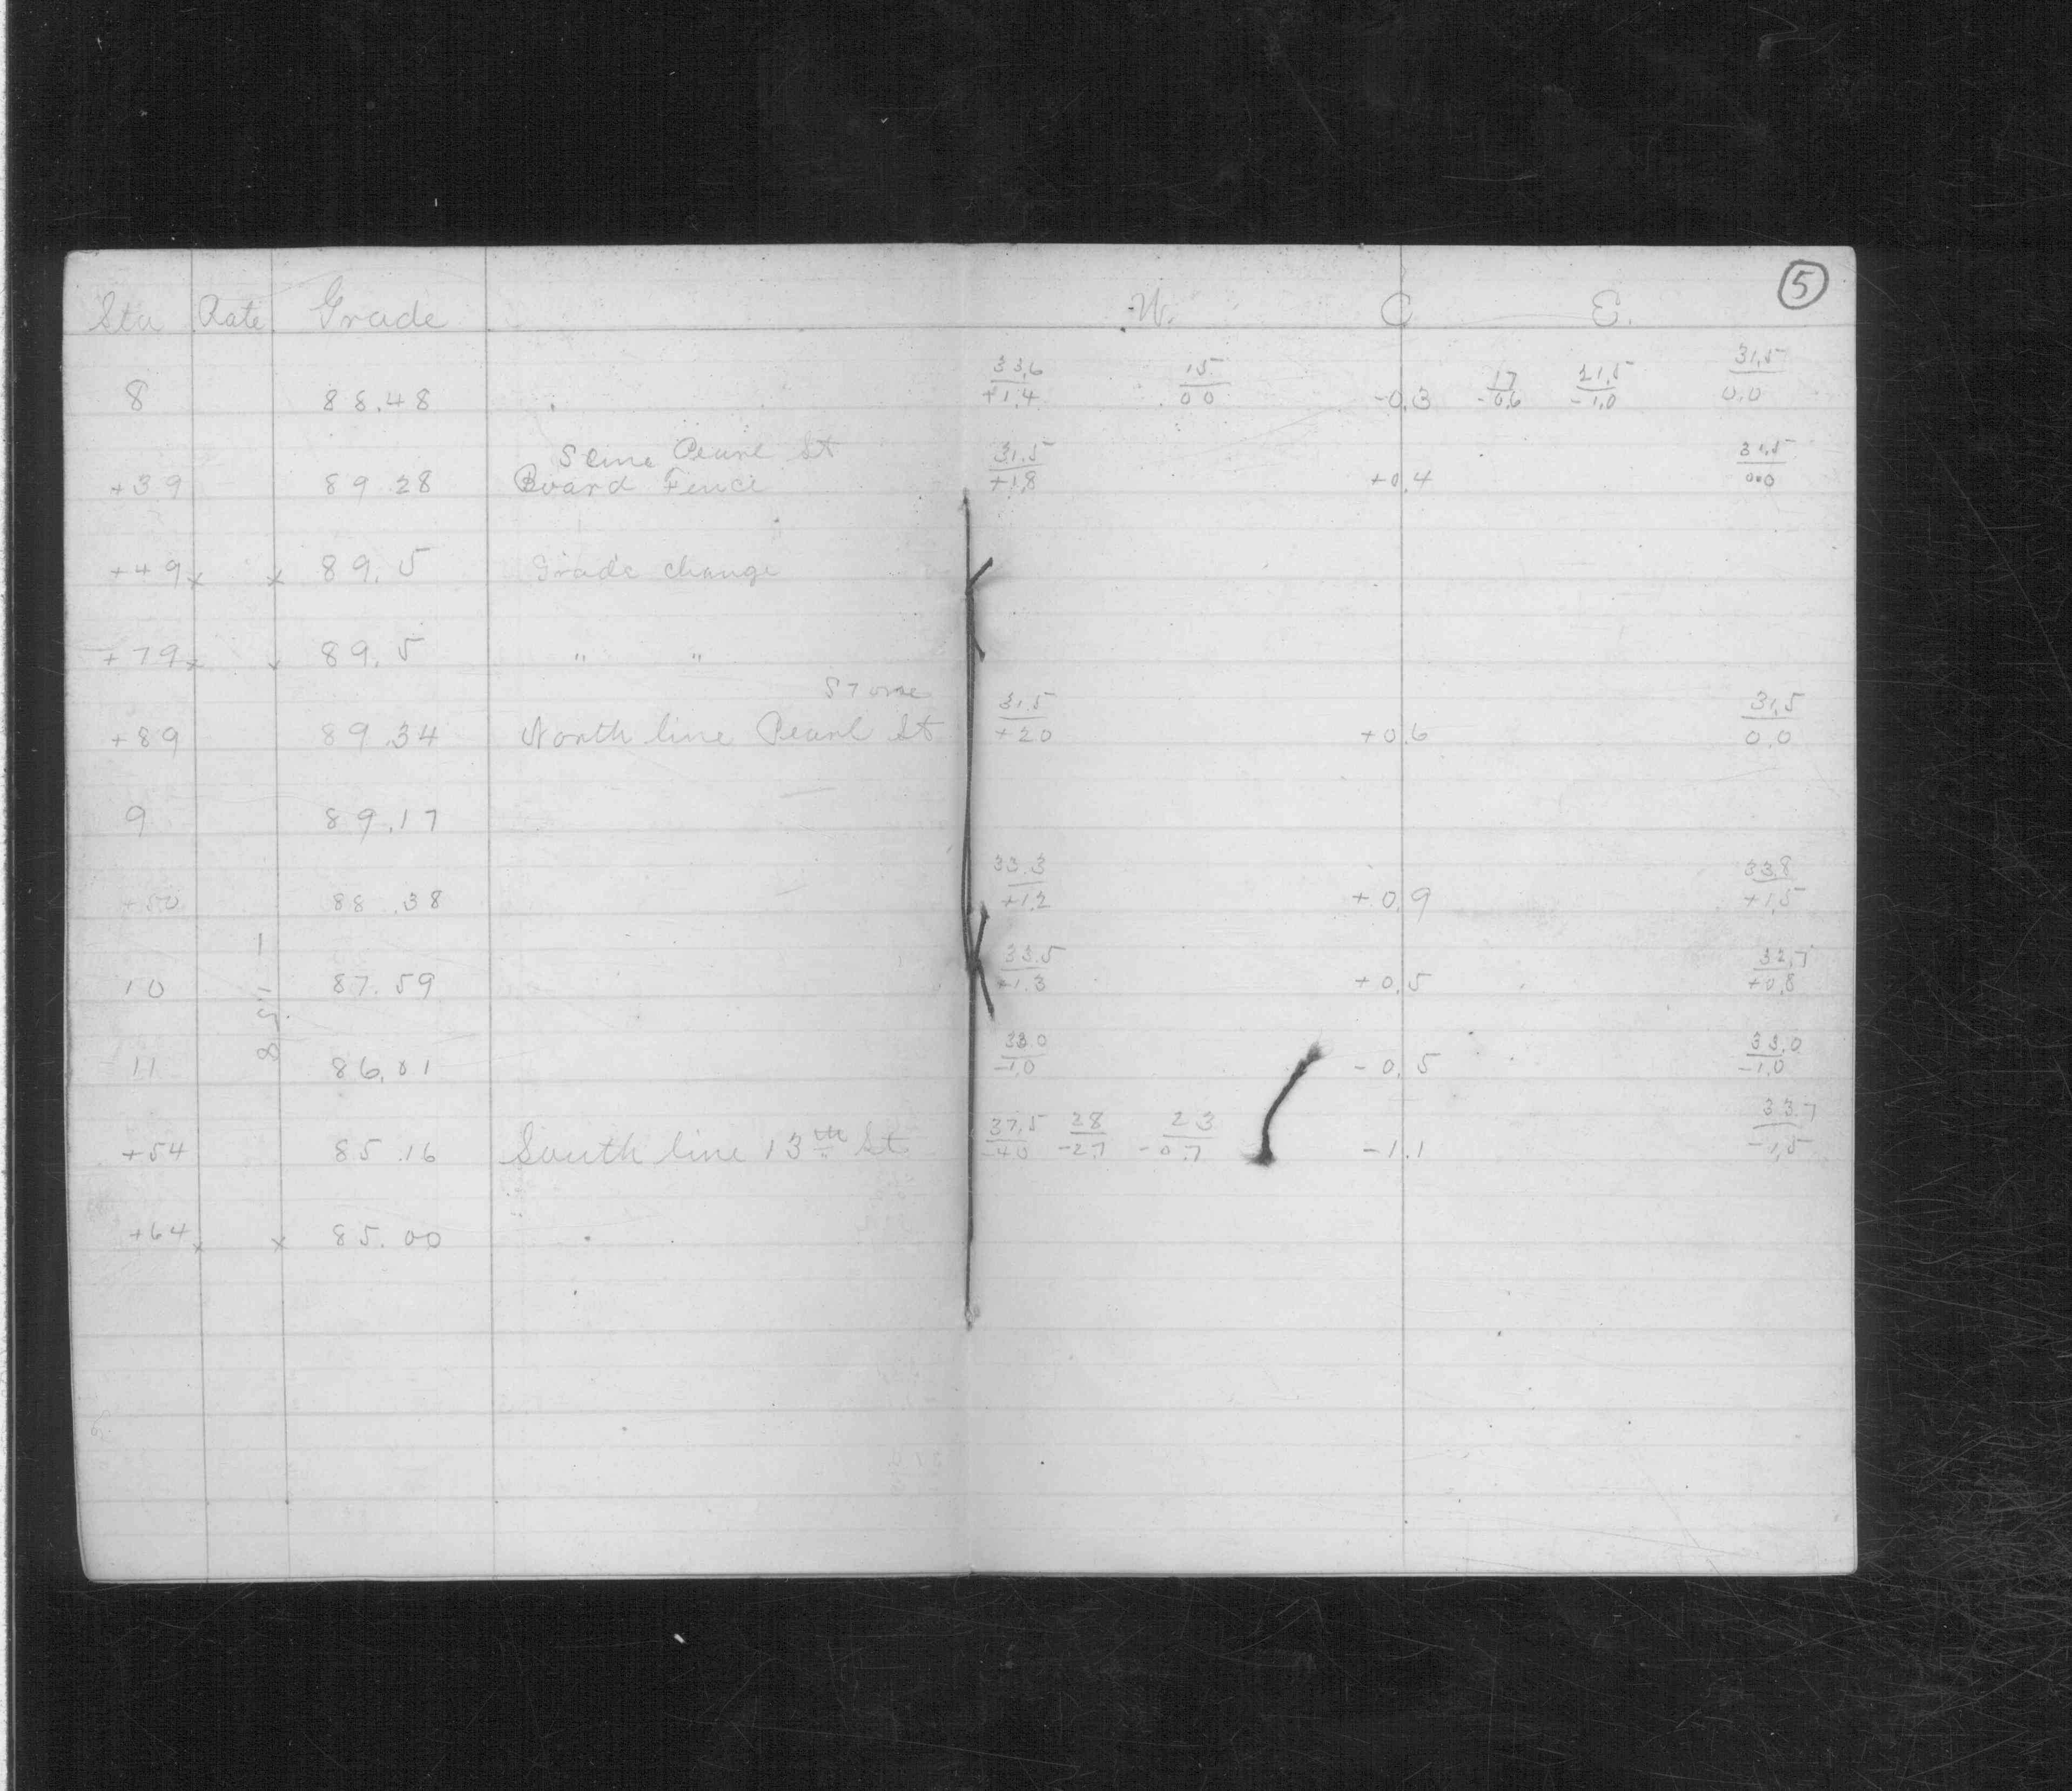 5
Sta Rate Grade W. C E.
33.6 15 17 21.5 31.5
8 88.48 +1.4 00 -0.3 -0.6 -1.0 0.0
S line Pearl St 31.5 31.5
+39 89.28 Board Fence +1.8 +0.4 0.0
+49 x x 89.5 Grade change
+79 x x 89.5 " "
Stone 31.5 31.5
+89 89.34 North line Pearl St +20 +0.6 0.0
9 89.17
33.3 33.8
+50 88.38 +1.2 +0.9 +1.5
33.5 32.7
10 87.59 +1.3 +0.5 +0.8
-1.58
33.0 33.0
11 86.01 -1.0 -0.5 -1.0
37.5 28 23 33.7
+54 85.16 South line 13th St -40 -27 -0.7 -1.1 -1.5
+64 x x 85.00